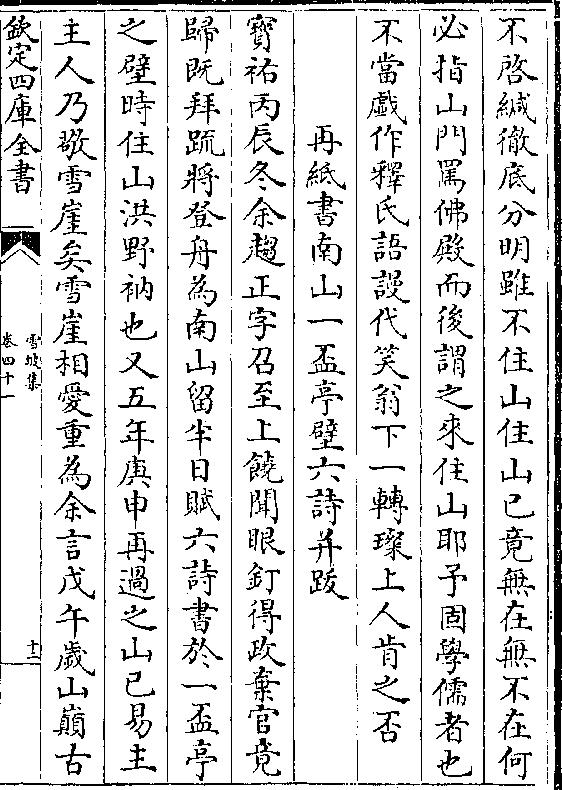 不啓緘徹底分明雖不住山住山已竟無在無不在何
必指山門罵佛殿而後謂之來住山耶予固學儒者也
不當戯作釋氏語謾代笑翁下一轉璨上人肯之否
再紙書南山一盃亭壁六詩并跋
寳祐丙辰冬余趨正字召至上饒聞眼釘得政棄官竟
歸既拜䟽將登舟為南山留半日賦六詩書於一盃亭
之壁時住山洪野衲也又五年庚申再過之山已易主
主人乃敬雪崖矣雪崖相愛重為余言戊午歲山巔古
欽定四庫全書
雪坡集
卷四十一
十二